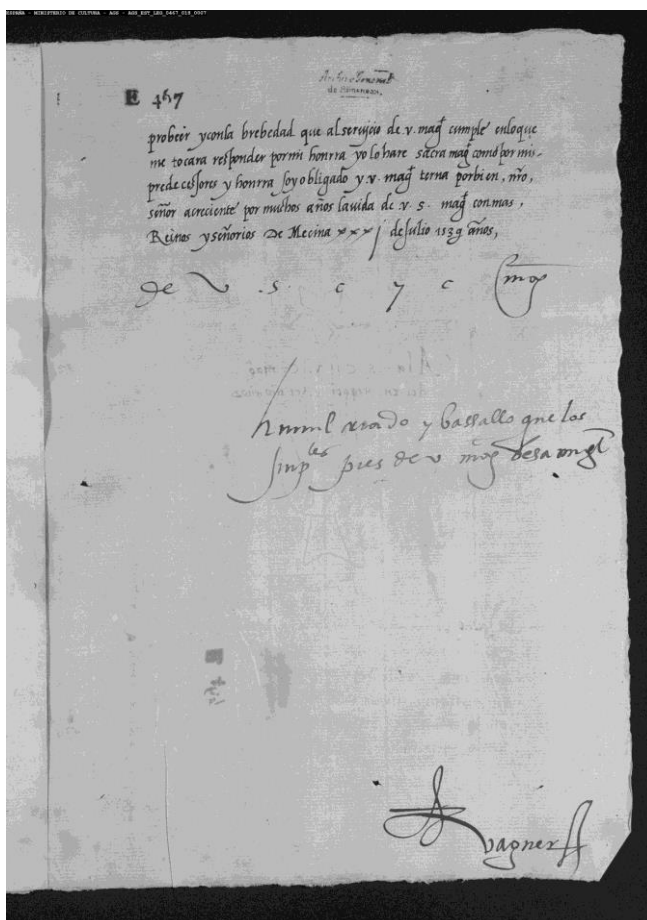 ESPAÑA - MINISTERIO DE CULTURA - AGS - AGS_EST_LEG_0467_018_0007
Archivo General
de SIMANCAS.
E 467
probeir y con la brebedad que al seruicio de v. magd cumple en lo que
me tocara responder por mi honrra yo lo hare sacra magd como por mis
predecessores y honrra soy obligado y. v. magd terna por bien, nro,
señor acreciente por muchos años la vida de v. s. magd con mas,
Reinos y señorios De Mecina xxxj de Julio 1539 años,
de V. s. c y c mag
humil criado y bassallo que los
pies de v mag besa
vagner